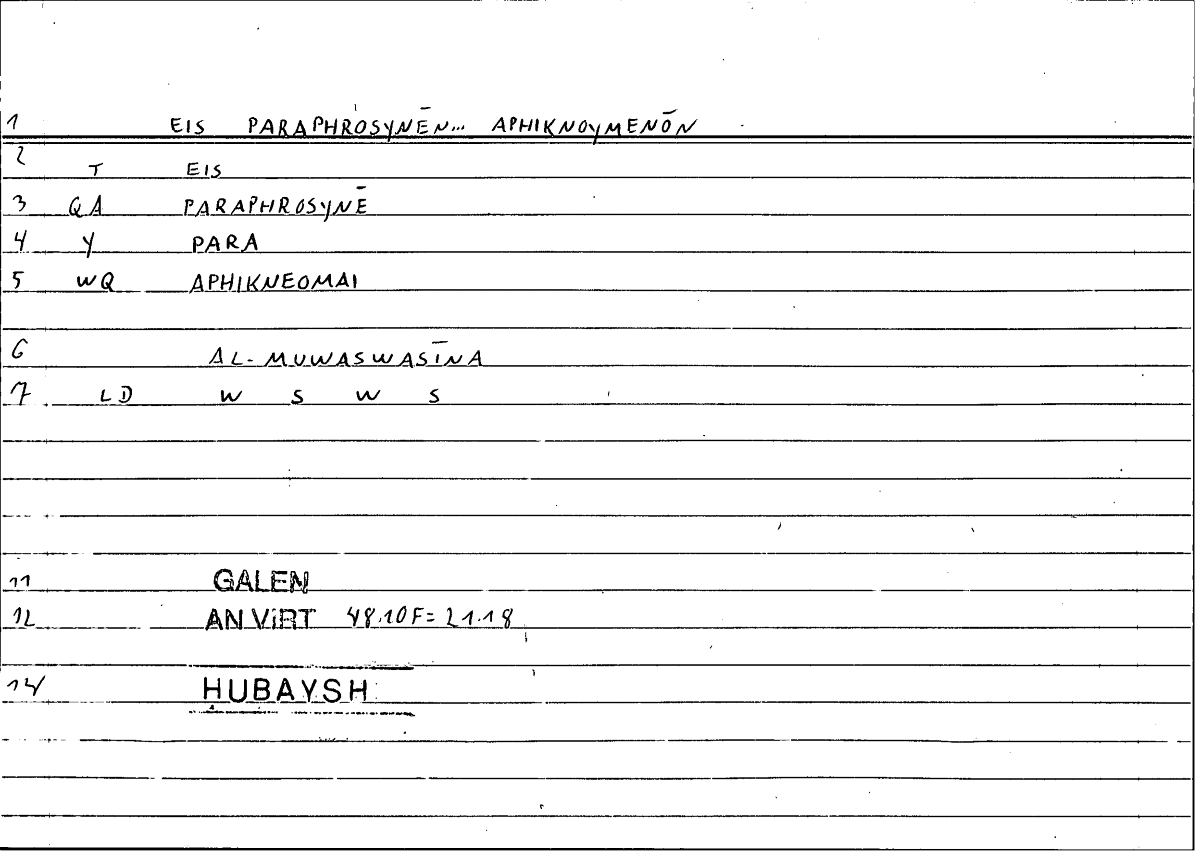 1 EIS PARAPHROSYNĒN... APHIKNOYMENŌN
2 T EIS
3 QA PARAPHROSYNĒ
4 Y PARA
5 WQ APHIKNEOMAI
6 AL-MUWASWASĪNA
7 LD W S W S
11 GALEN
12 AN VIRT 48.10F=21.18
14 HUBAYSH